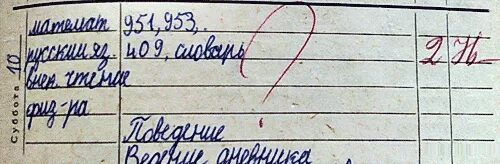 Суббота 10
математ. 951, 953,.
русский яз. 409, словарь 2
внек. чтение
физ-ра
Поведение
Ведение дневника